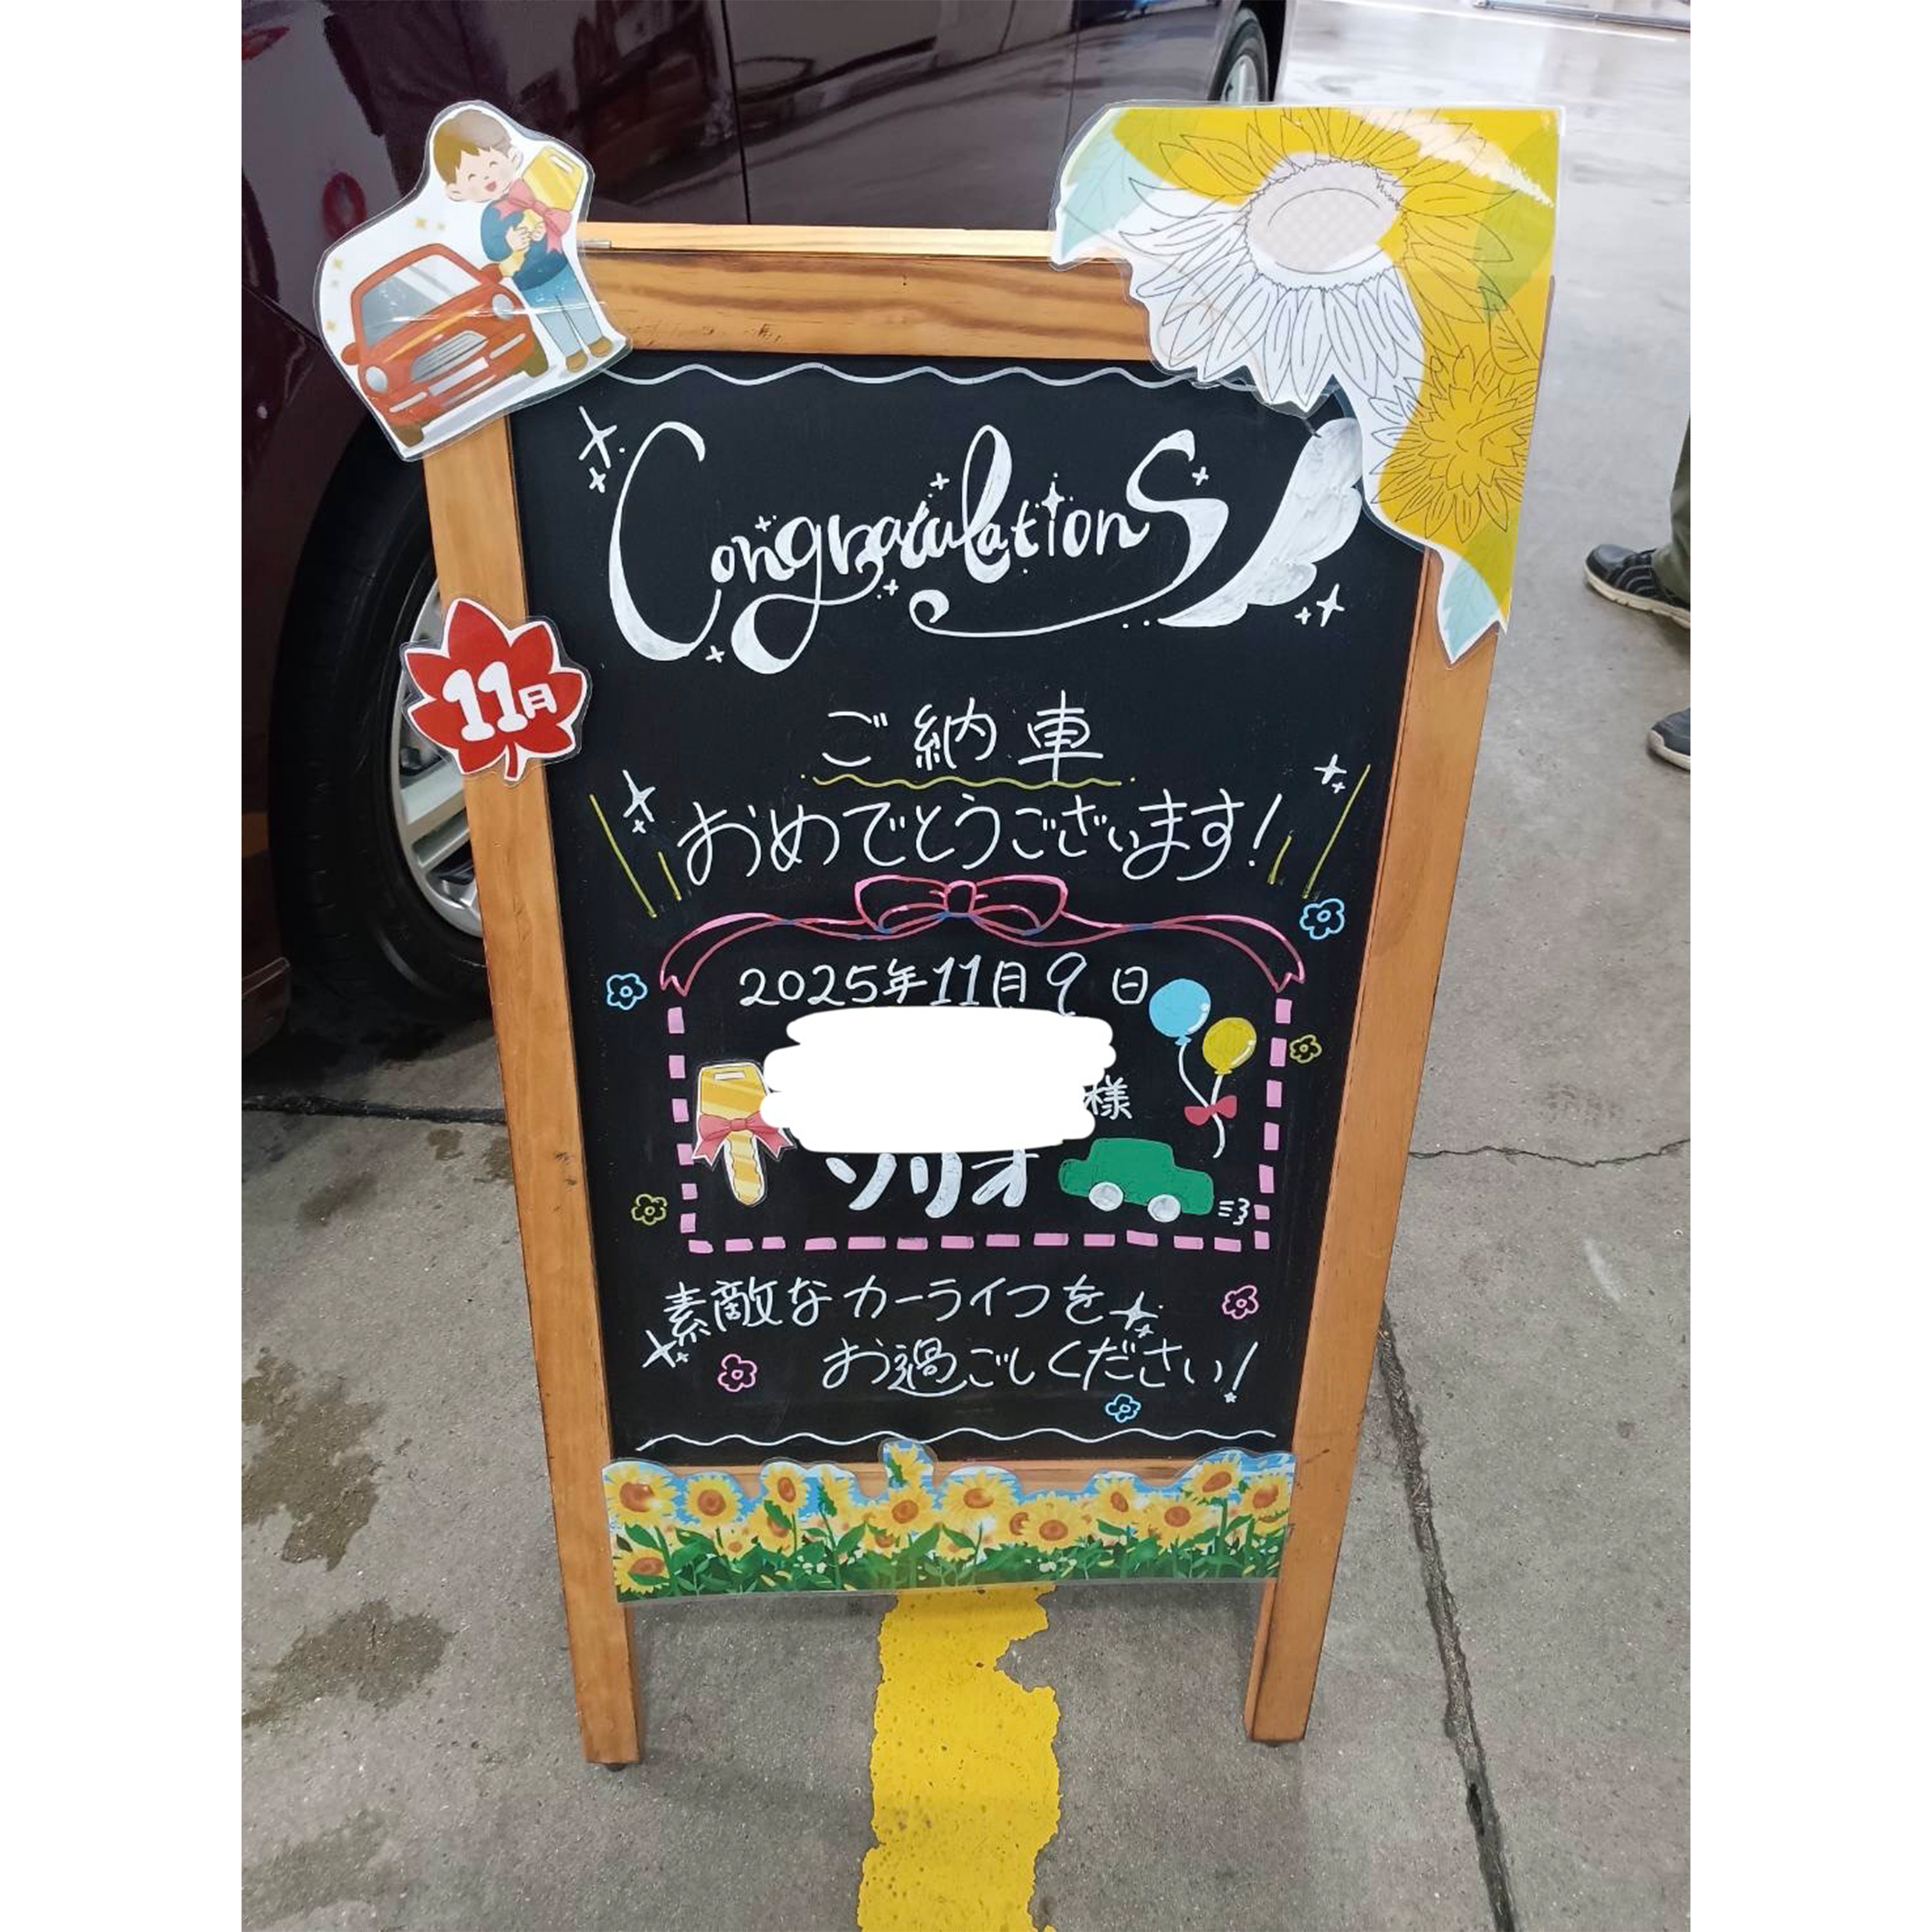 Congratulations
11月
ご納車
おめでとうございます!
2025年11月9日
様
ソリオ
素敵なカーライフを
お過ごしください!